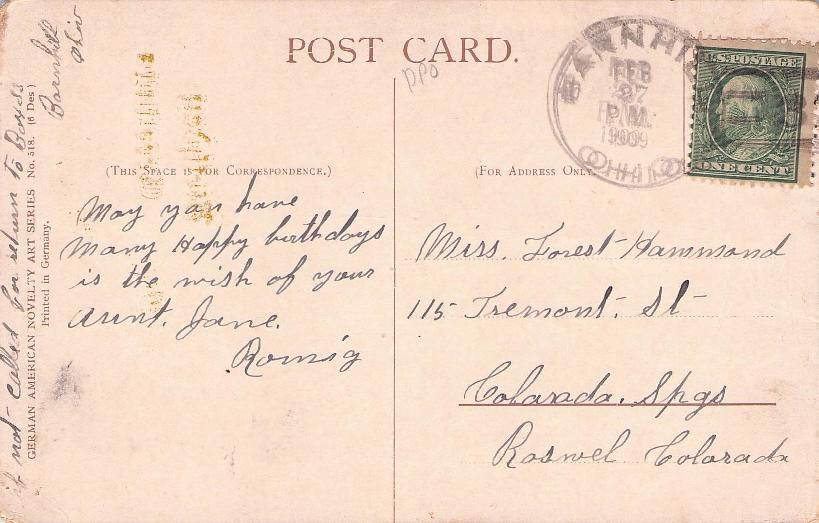 POST CARD.
DPO
BARNHILL
FEB
27
P.M.
1909
OHIO
U.S. POSTAGE
ONE CENT
(THIS SPACE IS FOR CORRESPONDENCE.)
(FOR ADDRESS ONLY.
May you have
many Happy birthdays
is the wish of your
Aunt. Jane.
Romig
Miss. Forest Hammond
115 Tremont. St
Colorada. Spgs
Roswel Colorada
if not called for return to
Barnhill
Ohio
GERMAN AMERICAN NOVELTY ART SERIES No. 518. (6 Des)
Printed in Germany.